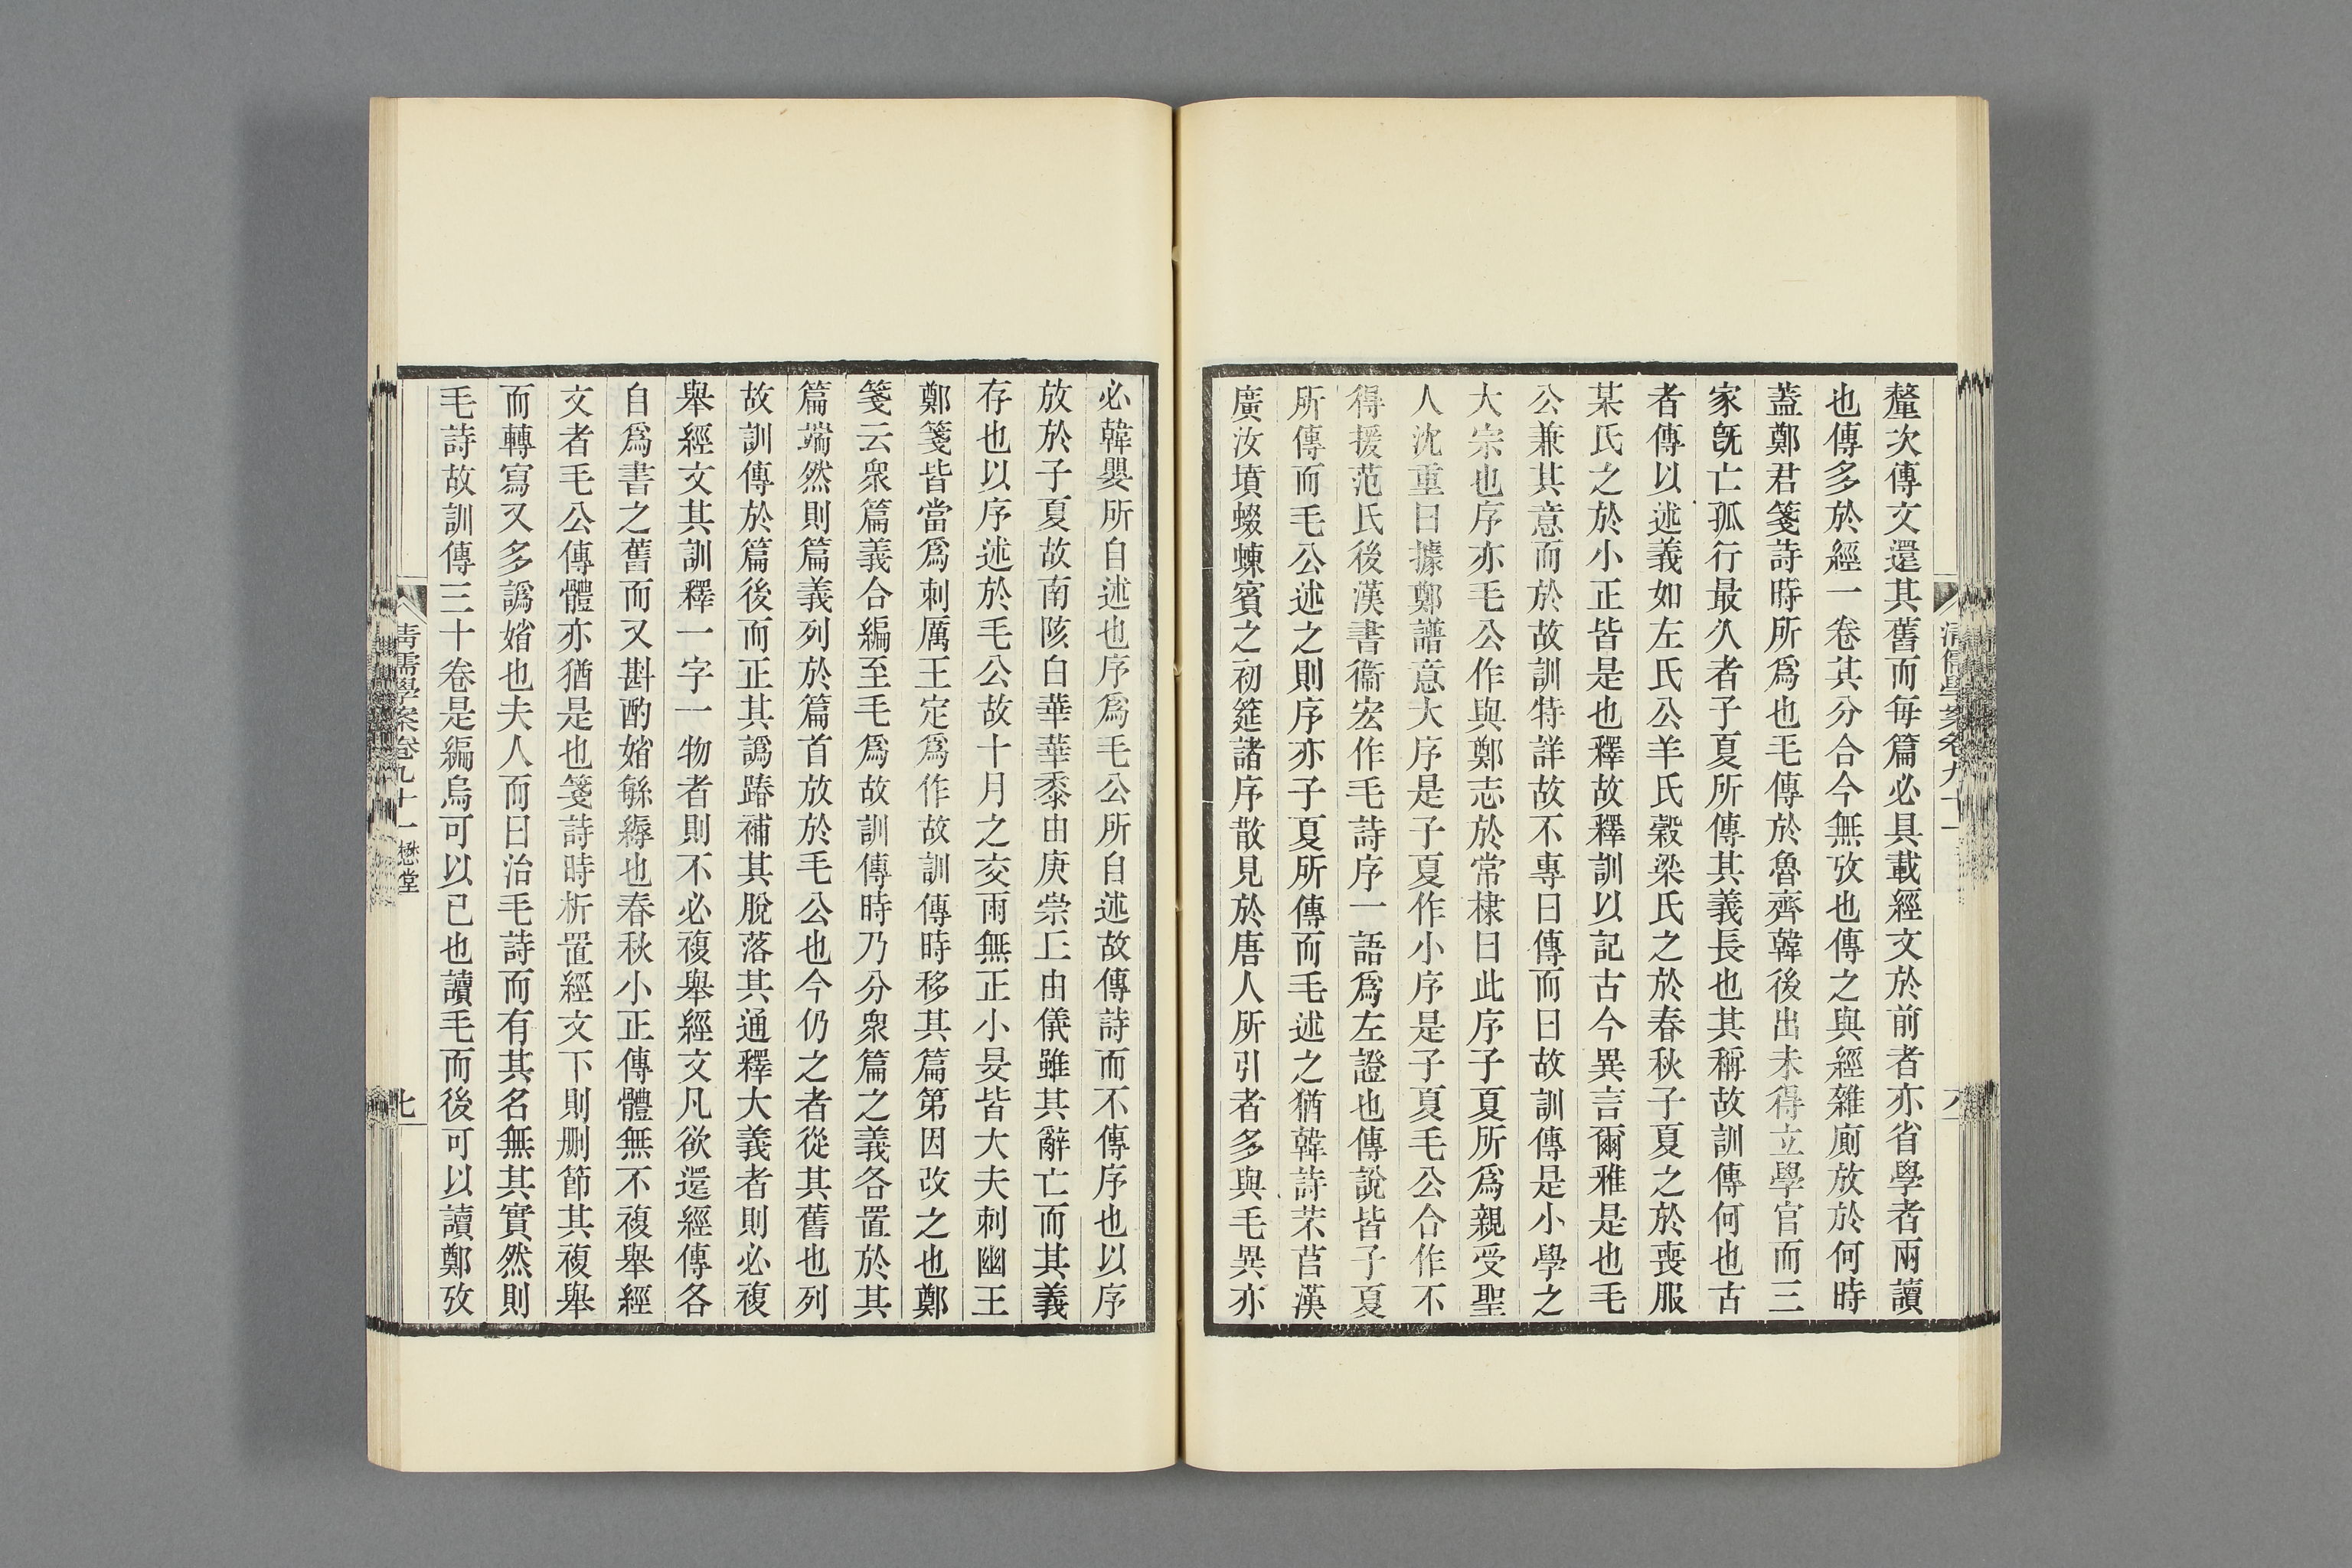 清儒學案卷九十一
六
釐次傳文還其舊而每篇必具載經文於前者亦省學者兩讀
也傳多於經一卷其分合今無攷也傳之與經雜廁放於何時
葢鄭君箋詩時所爲也毛傳於魯齊韓後出未得立學官而三
家旣亡孤行最久者子夏所傳其義長也其稱故訓傳何也古
者傳以述義如左氏公羊氏穀梁氏之於春秋子夏之於喪服
某氏之於小正皆是也釋故釋訓以記古今異言爾雅是也毛
公兼其意而於故訓特詳故不專曰傳而曰故訓傳是小學之
大宗也序亦毛公作與鄭志於常棣曰此序子夏所爲親受聖
人沈重曰據鄭譜意大序是子夏作小序是子夏毛公合作不
得援范氏後漢書衞宏作毛詩序一語爲左證也傳說皆子夏
所傳而毛公述之則序亦子夏所傳而毛述之猶韓詩芣苢漢
廣汝墳蝃蝀賓之初筵諸序散見於唐人所引者多與毛異亦
必韓嬰所自述也序爲毛公所自述故傳詩而不傳序也以序
放於子夏故南陔白華華黍由庚崇丘由儀雖其辭亡而其義
存也以序述於毛公故十月之交雨無正小旻皆大夫刺幽王
鄭箋皆當爲刺厲王定爲作故訓傳時移其篇第因改之也鄭
箋云衆篇義合編至毛爲故訓傳時乃分衆篇之義各置於其
篇端然則篇義列於篇首放於毛公也今仍之者從其舊也列
故訓傳於篇後而正其譌踳補其脫落其通釋大義者則必複
舉經文其訓釋一字一物者則不必複舉經文凡欲還經傳各
自爲書之舊而又斟酌媘緐縟也春秋小正傳體無不複舉經
文者毛公傳體亦猶是也箋詩時析置經文下則刪節其複舉
而轉寫又多譌媘也夫人而曰治毛詩而有其名無其實然則
毛詩故訓傳三十卷是編烏可以已也讀毛而後可以讀鄭攷
清儒學案卷九十一 懋堂
七